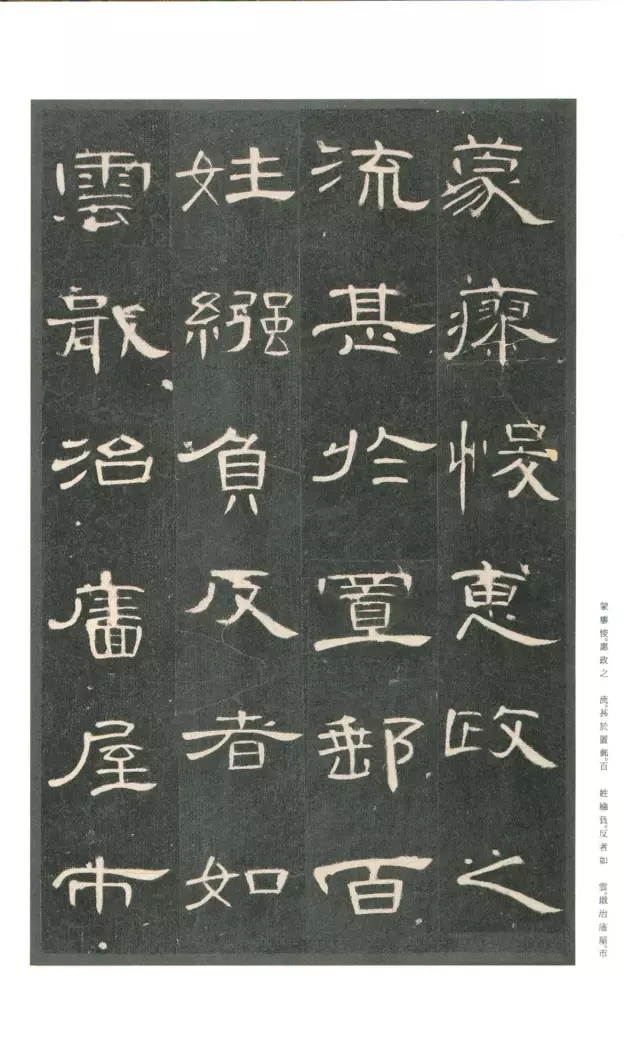 蒙瘳悛惠政之
流甚於置郵百
姓繦負反者如
雲戢治廧屋市
蒙瘳悛。惠政之　流。甚於置郵。百　姓繦負。反者如　雲。戢治廧屋。市